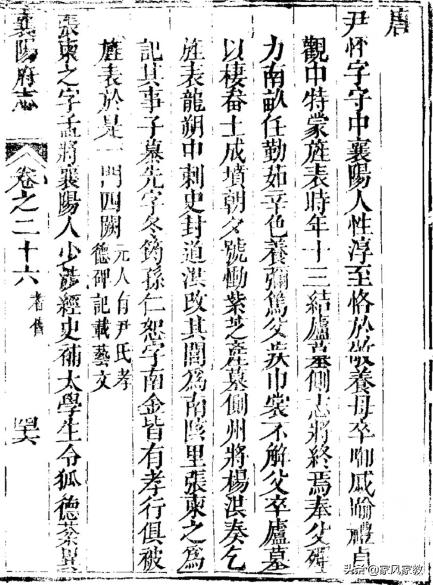 唐
尹怀字守中襄陽人性淳至恪於敬養母卒戚踰禮貞
觀中特蒙旌表時年十三結廬墓側志將終焉奉父殫
力南畝任勤茹辛色養彌篤父疾巾裳不解父卒廬墓
以棲畚土成墳朝夕號慟紫芝產墓側州將楊洪奏乞
旌表龍朔中刺史封道洪改其閭爲南陔里張柬之爲
記其事子慕先字冬筠孫仁恕字南金皆有孝行俱被
旌表於是一門四闕
元人有尹氏孝
德碑記載藝文
張柬之字孟將襄陽人少涉經史補太學生令狐德棻異
襄陽府志 卷之二十六 耆舊
头条 @家风家教